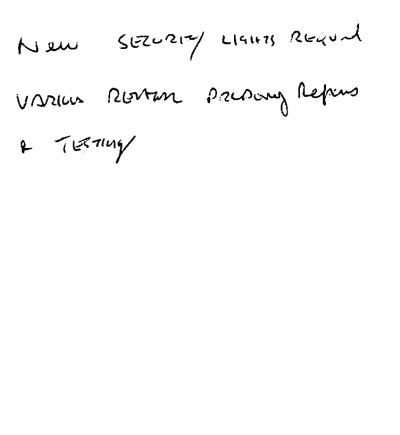 New SECURITY LIGHTS REQUIRED
VARIOUS RENTAL PROPERTY Repairs
& TESTING